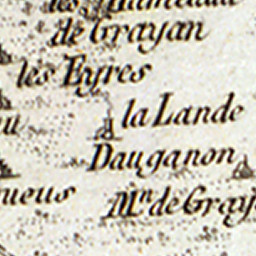 de Grayan
les Eyres
la Lande
Dauganon
Mn de Gray